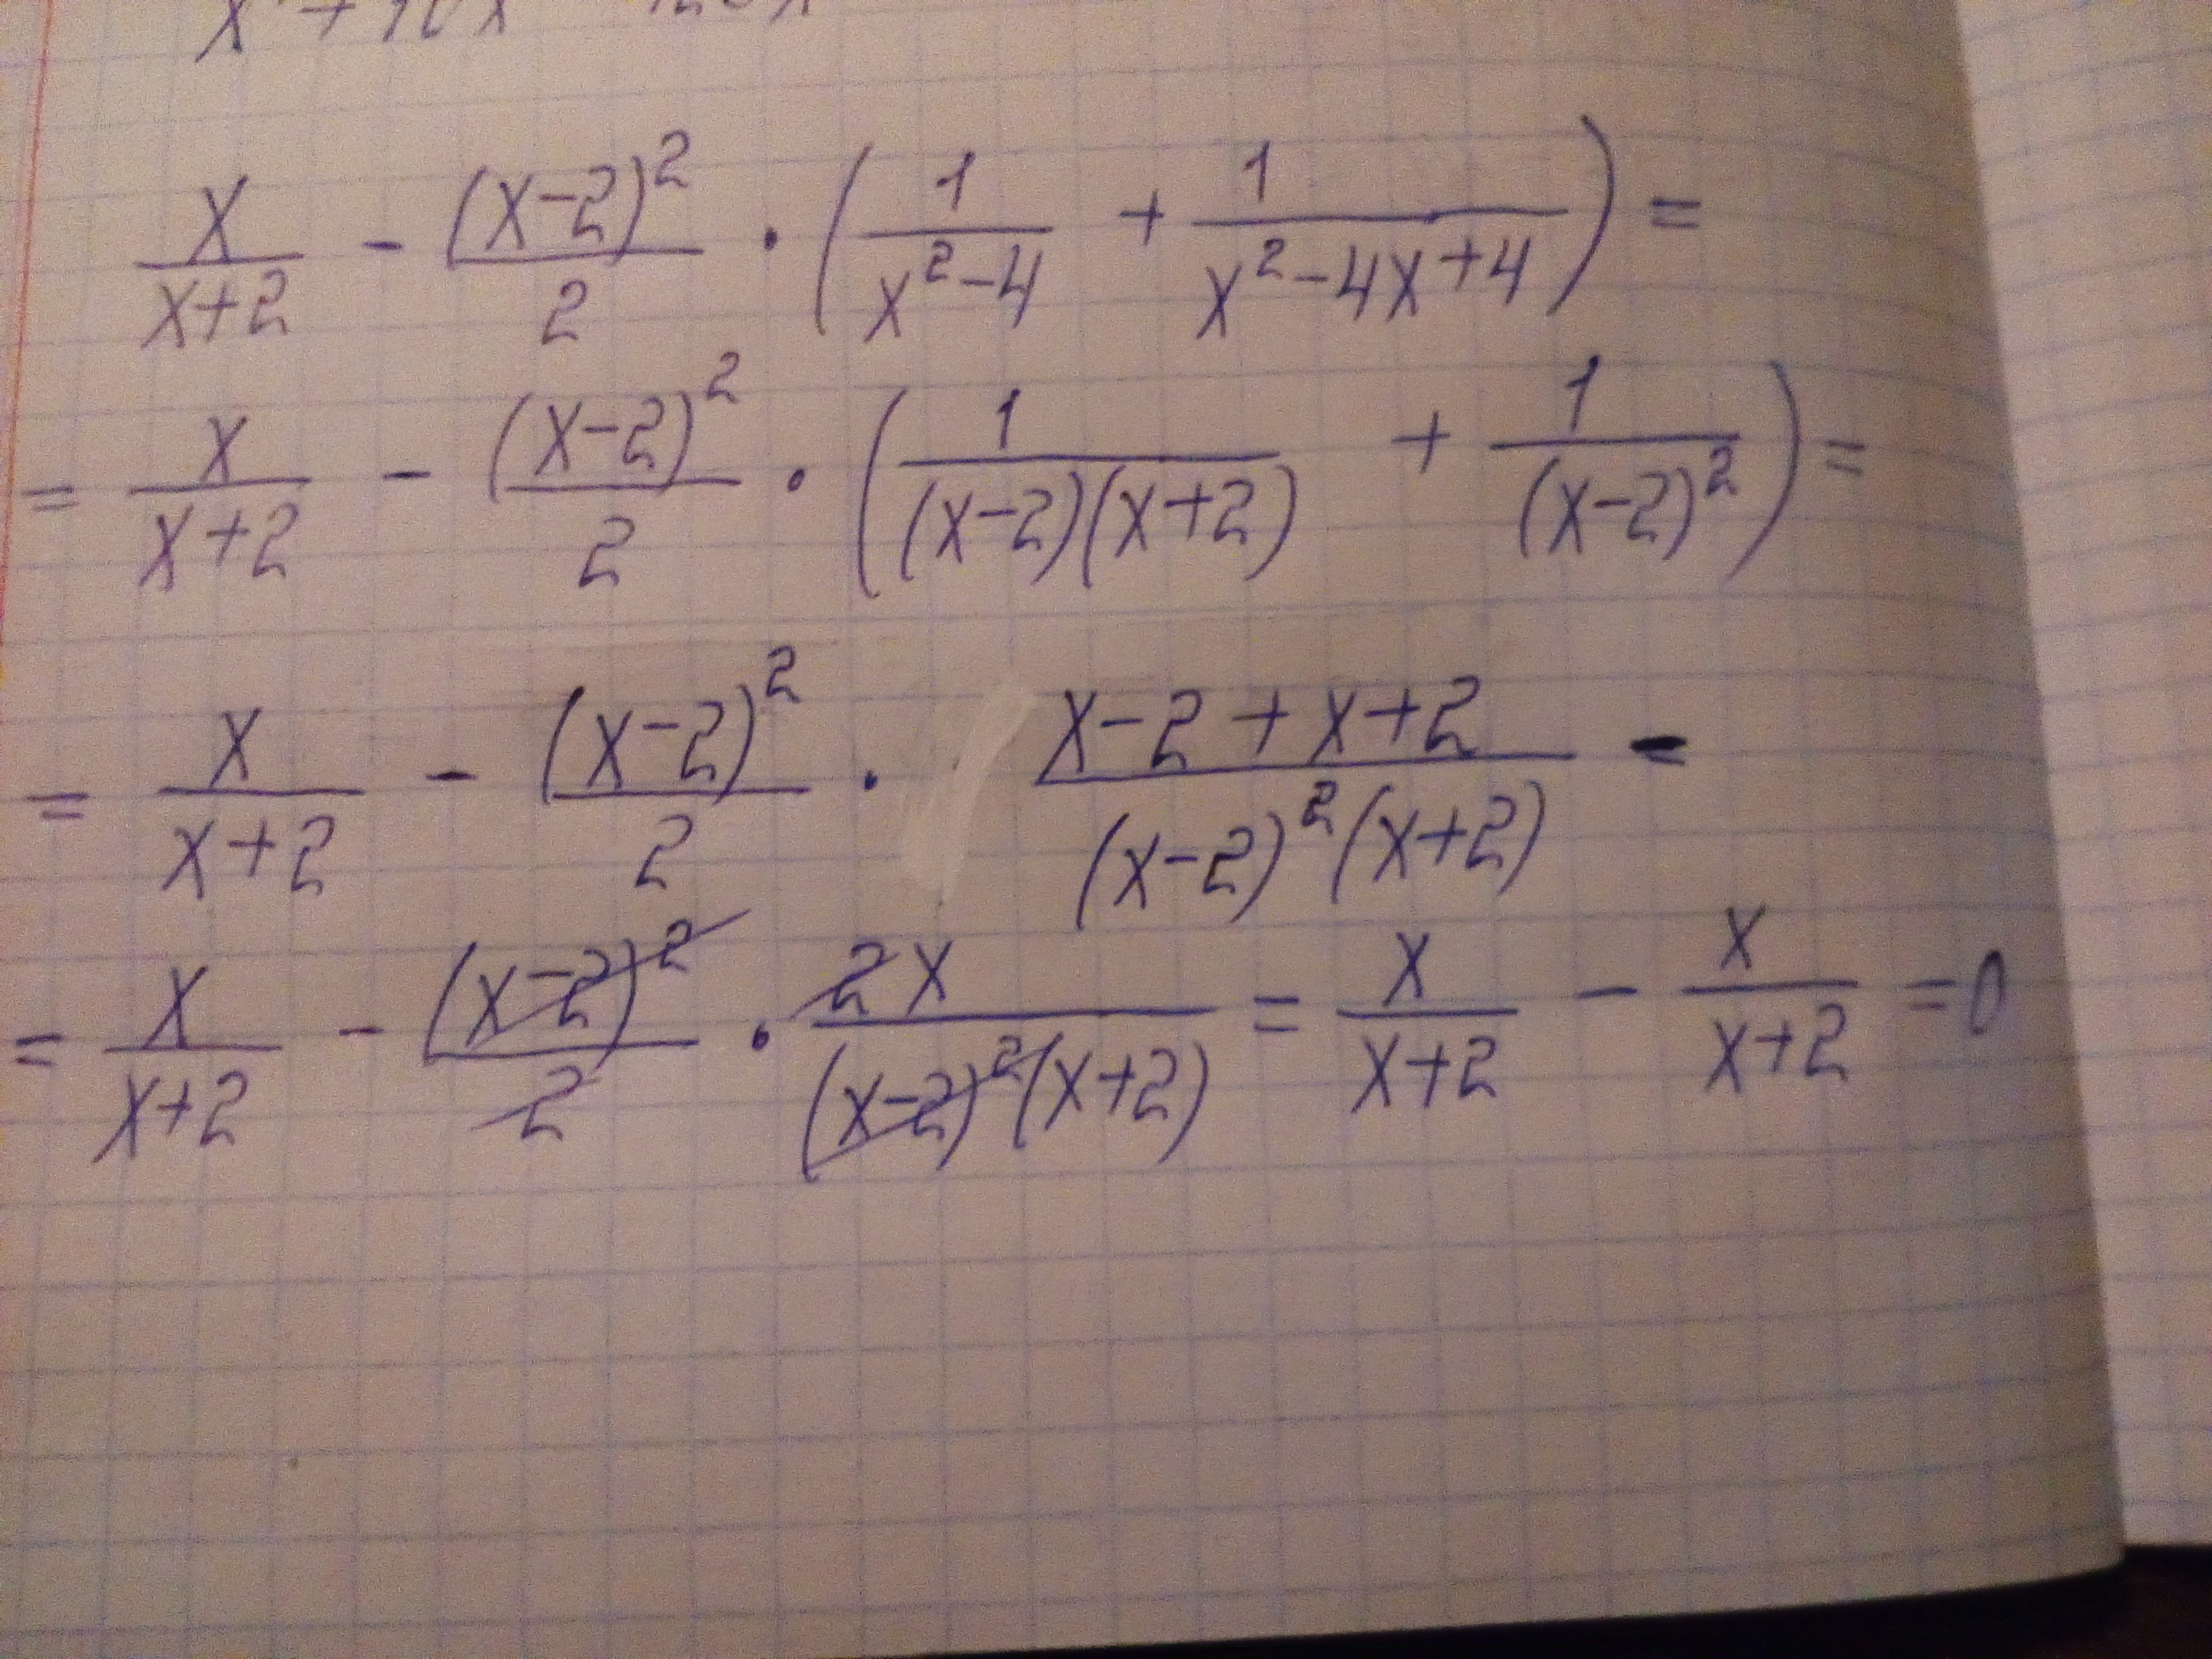 x/(x+2) - (x-2)²/2 · (1/(x²-4) + 1/(x²-4x+4)) =
= x/(x+2) - (x-2)²/2 · (1/((x-2)(x+2)) + 1/(x-2)²) =
= x/(x+2) - (x-2)²/2 · (x-2+x+2)/((x-2)²(x+2)) -
= x/(x+2) - (x-2)²/2 · 2x/((x-2)²(x+2)) = x/(x+2) - x/(x+2) = 0